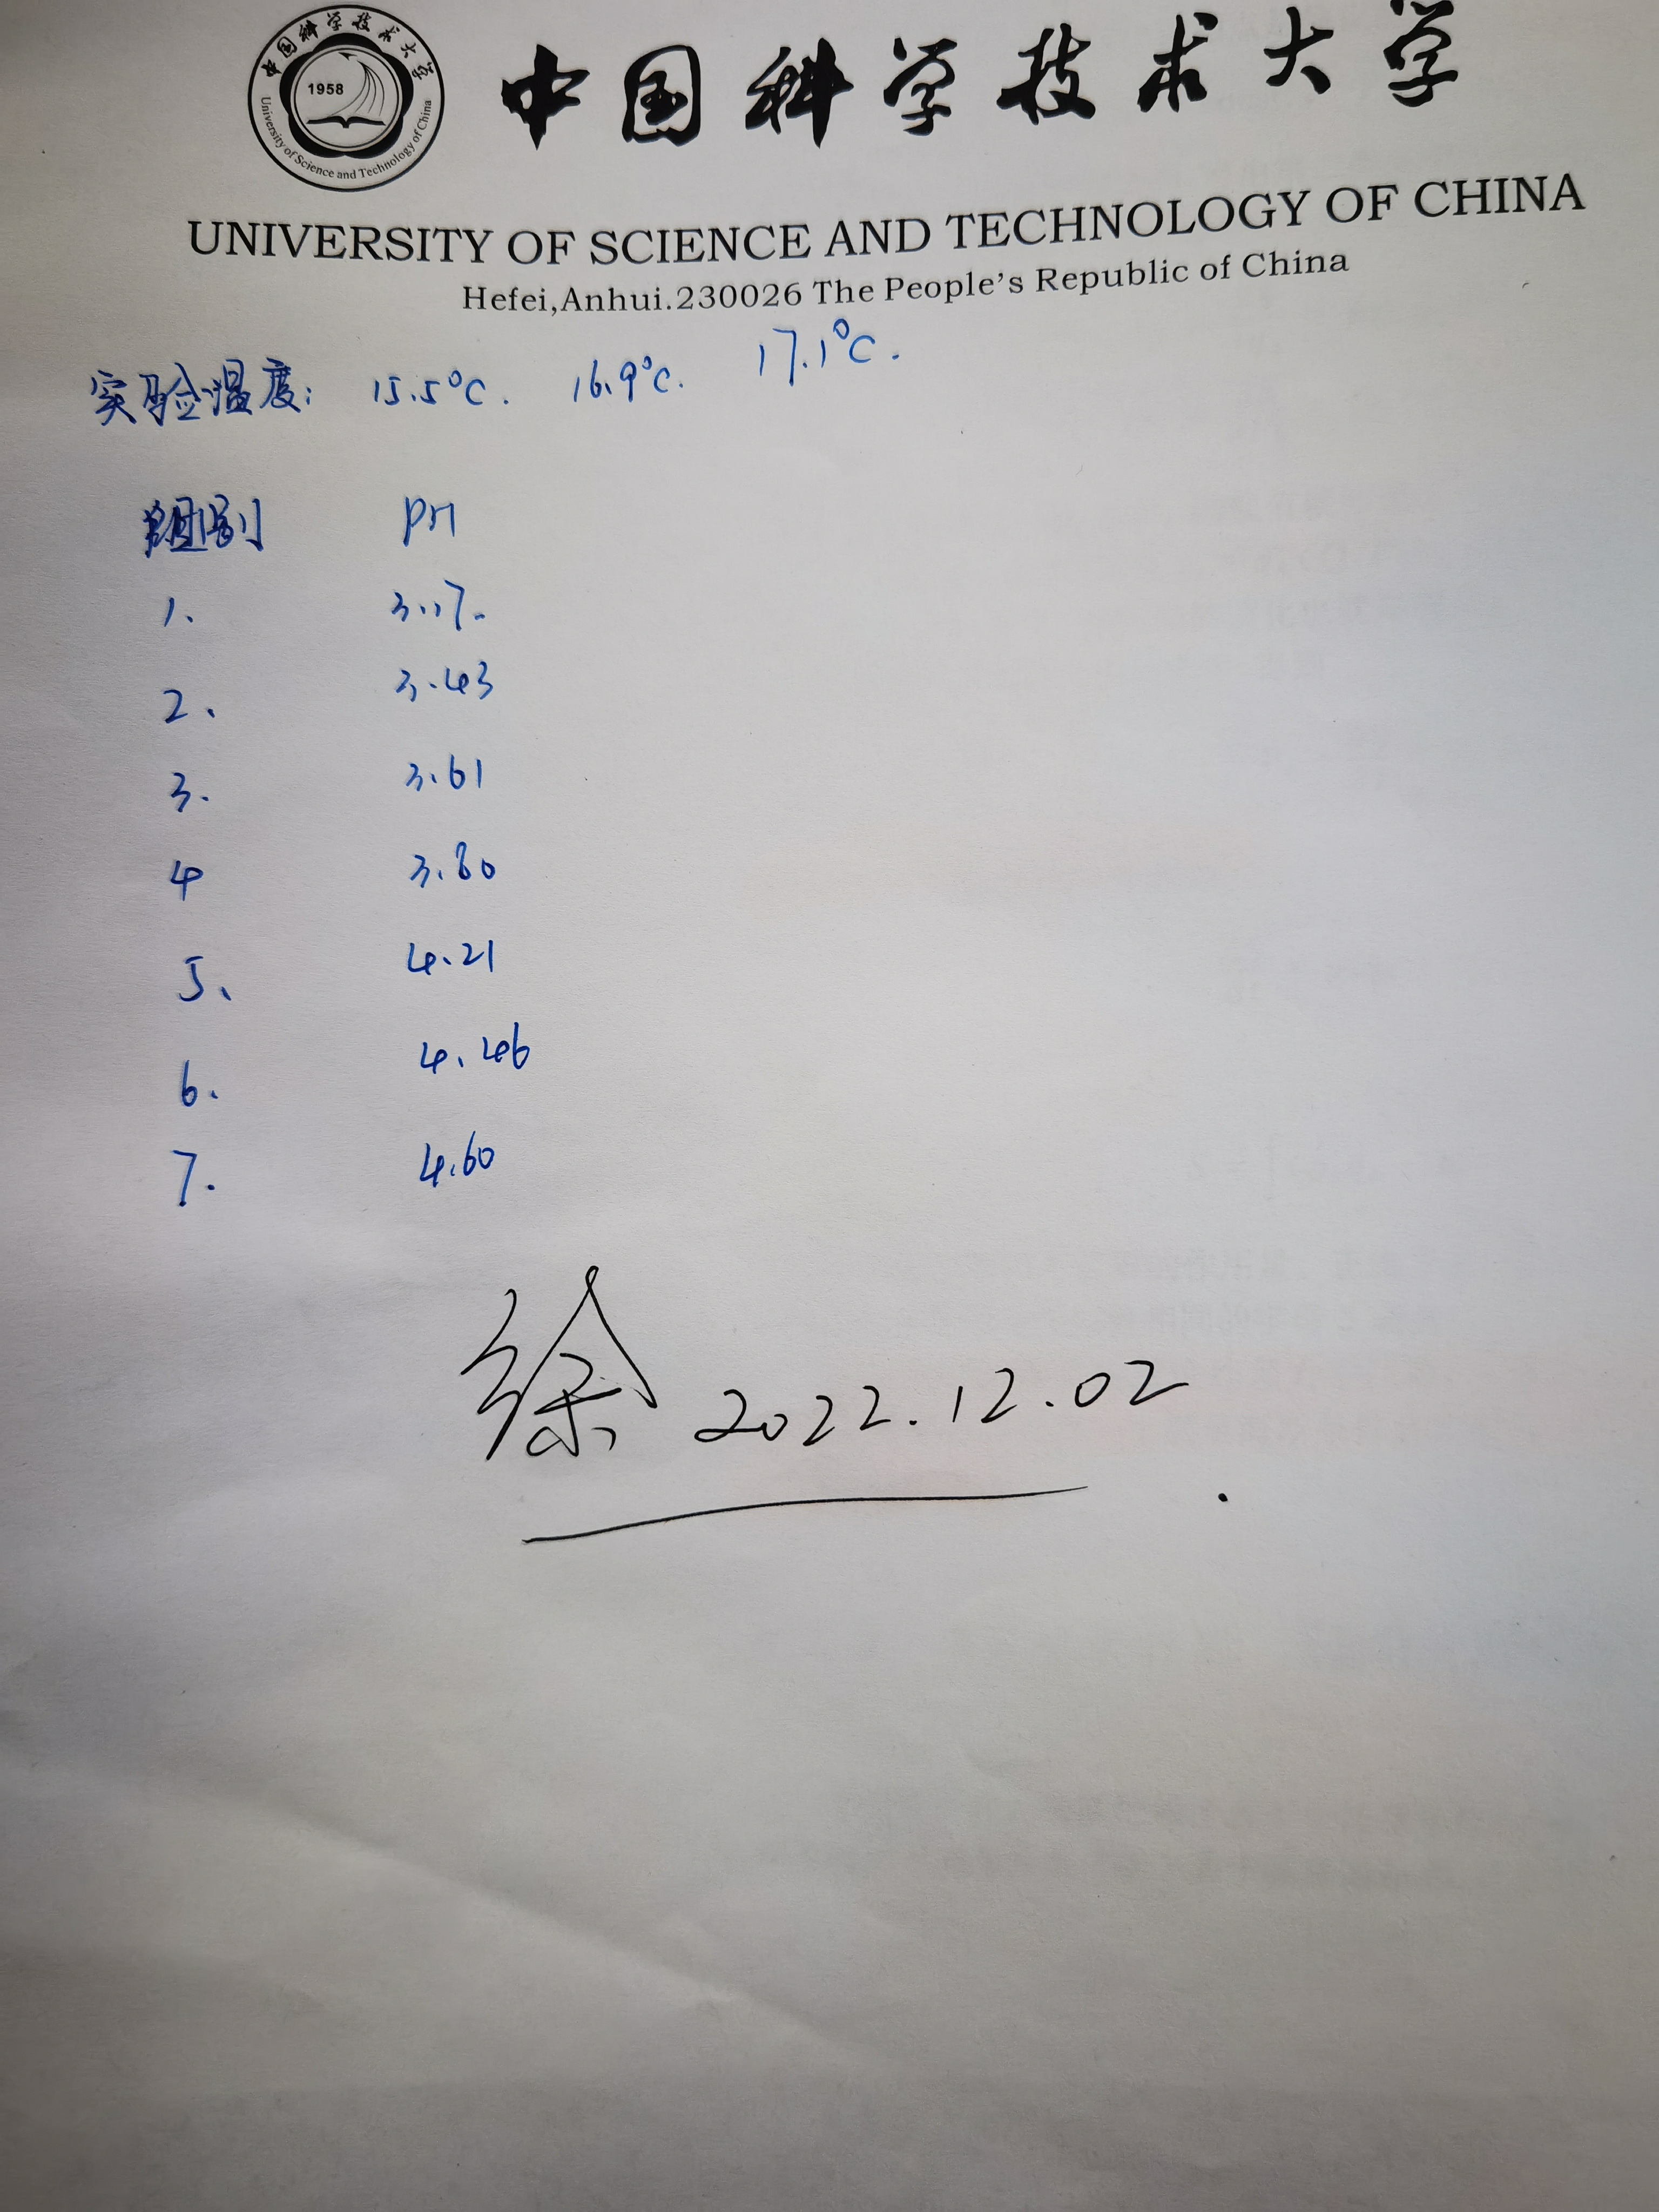 中国科学技术大学
1958
University of Science and Technology of China
中国科学技术大学
UNIVERSITY OF SCIENCE AND TECHNOLOGY OF CHINA
Hefei,Anhui.230026 The People's Republic of China
实验温度: 15.5°C. 16.9°C. 17.1°C.
组别 PH
1、 3.17.
2、 3.43
3. 3.61
4 3.80
5、 4.21
6. 4.46
7. 4.60
徐 2022.12.02